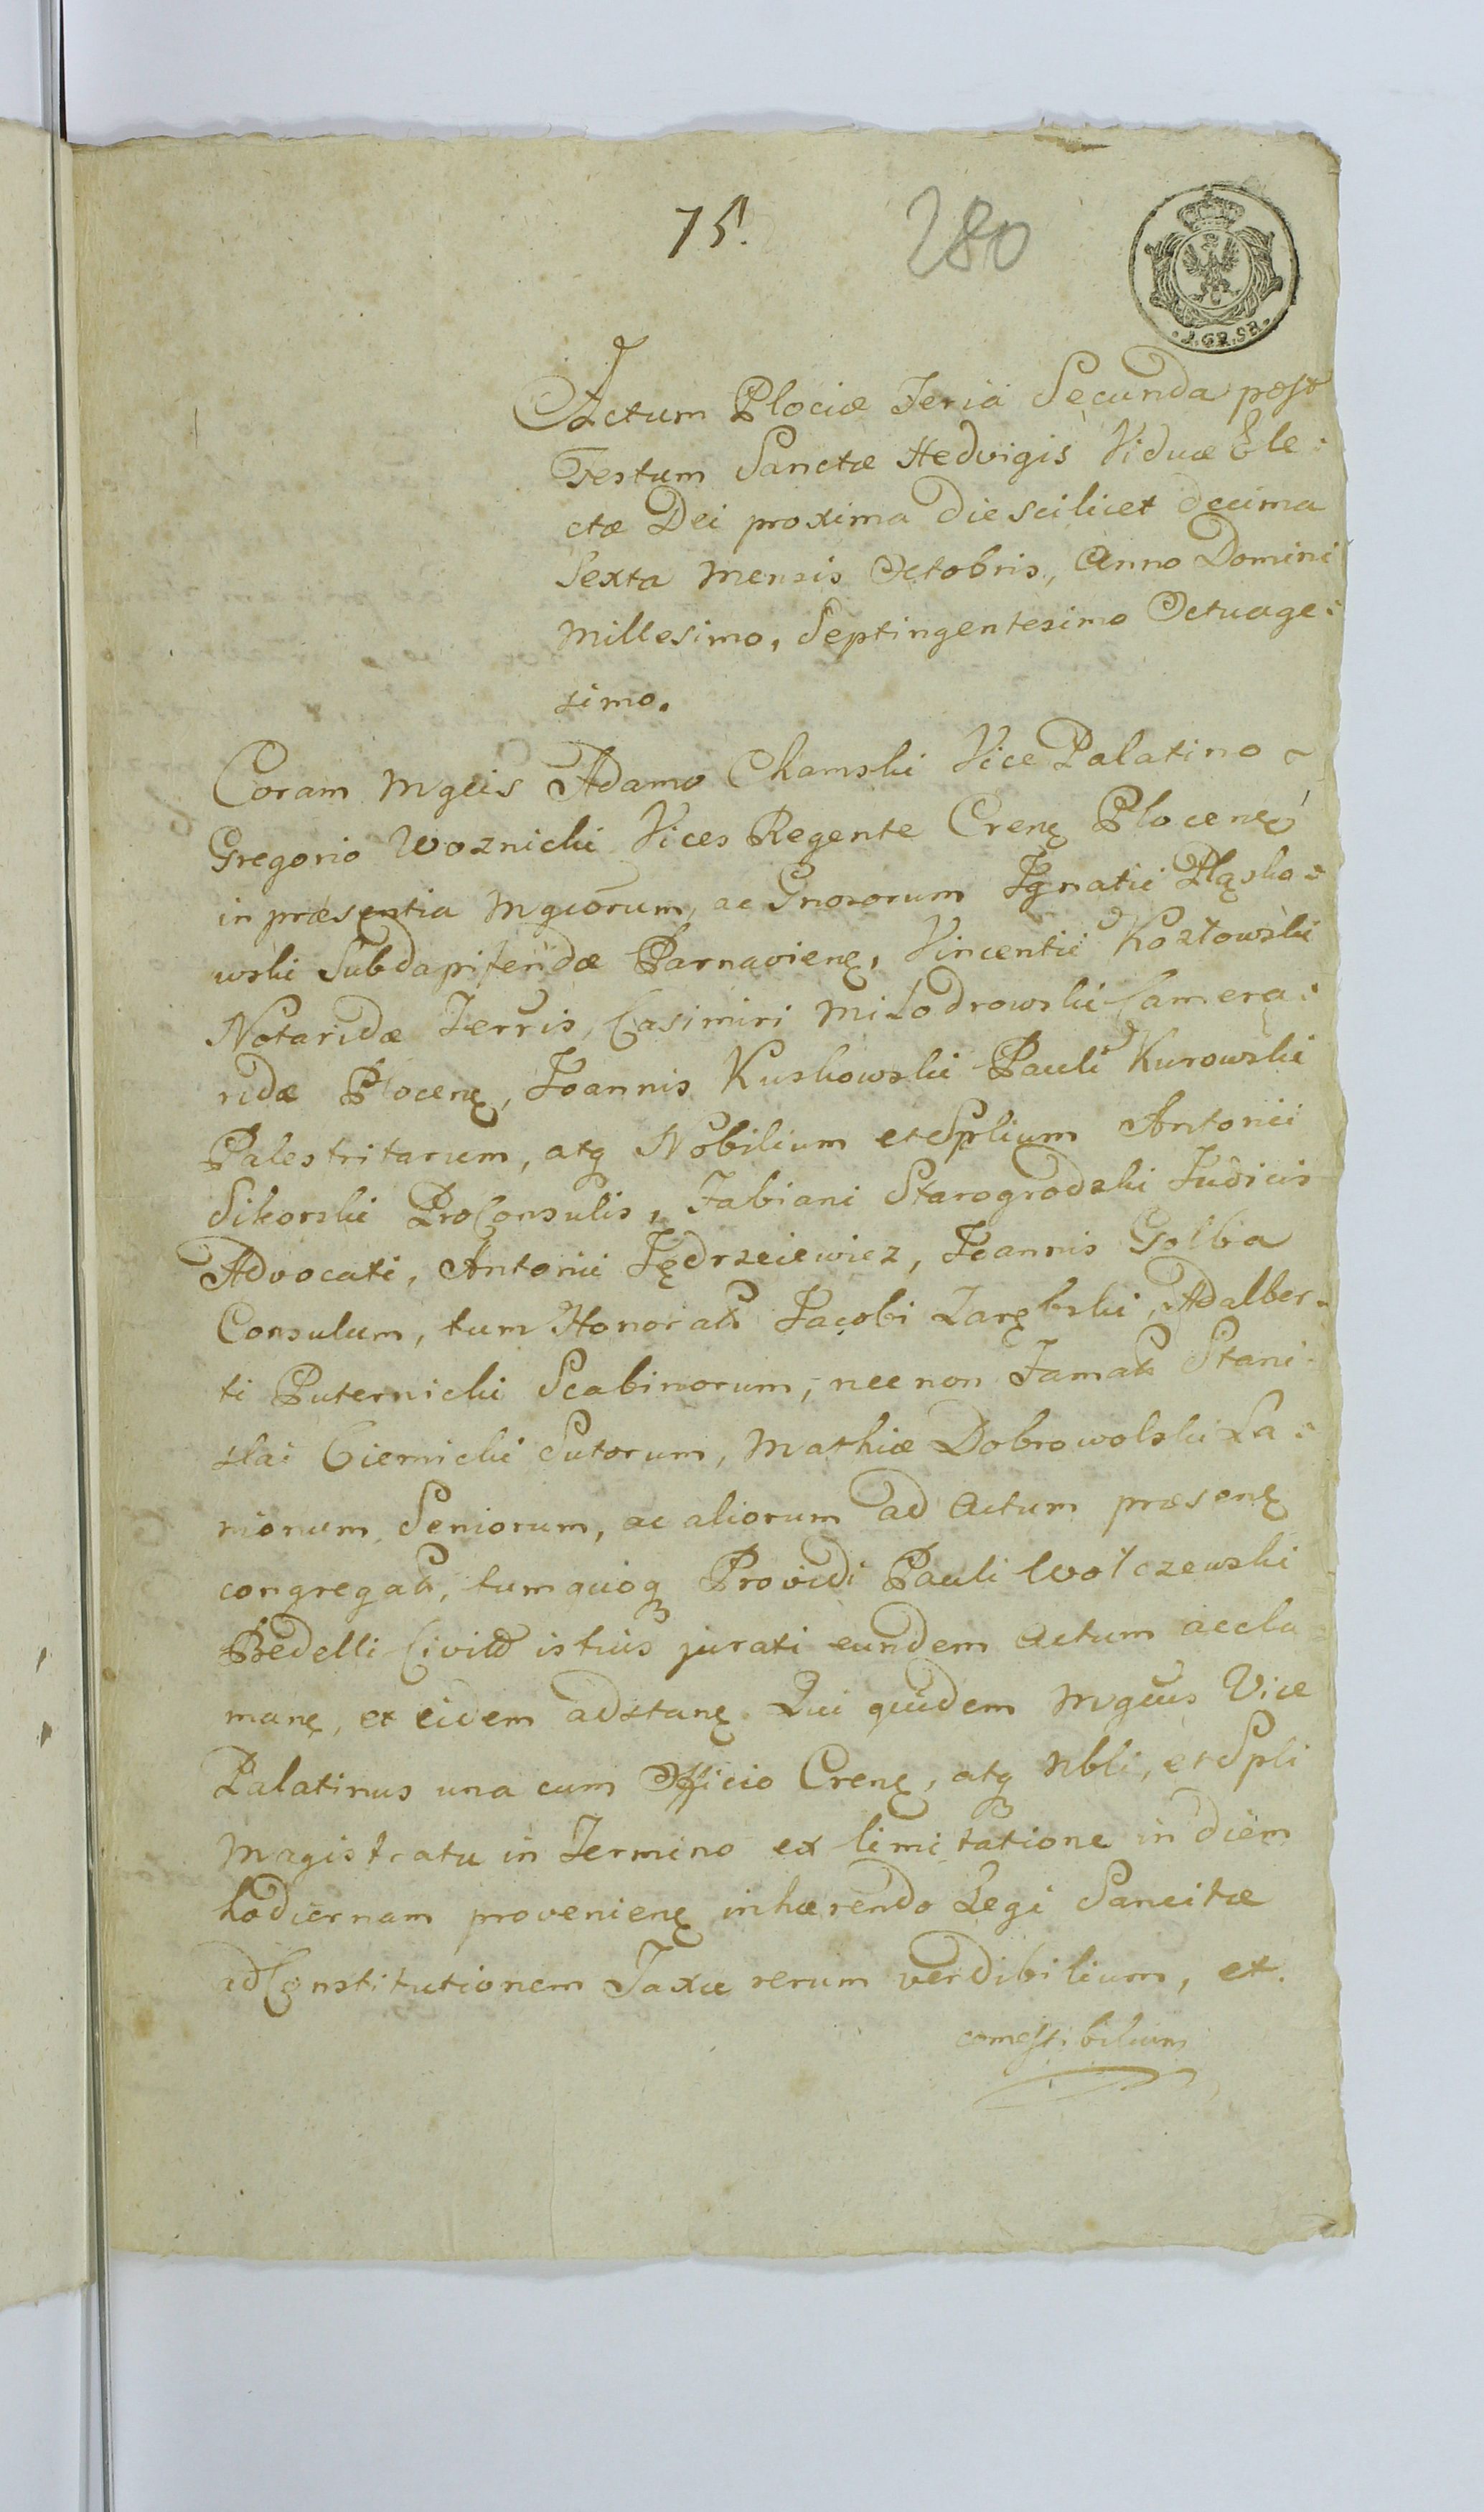 75.
280
J.GR.SR.
Actum Plociæ Feria Secunda post
Festum Sanctæ Hedvigis Viduæ Ele:
ctæ Dei proxima die scilicet decima
Sexta Mensis Octobris, Anno Domini
Millesimo, Septingentesimo Octuage:
simo.
Coram Mgcis Adamo Chamski Vice Palatino
Gregorio Woznicki Vices Regente Crenę Plocenę
in præsentia Mgcorum, ac Gnosorum Ignatii Pląsko:
wski Subdapiferidæ Parnavienę, Vincentii Kozłowski
Notaridæ Terris, Casimiri Milodrowski Camera:
ridæ Plocenę, Joannis Kuskowski Pauli Kurowski
Palestritarum, atq Nobilium et Splium Antonii
Sikorski ProConsulis, Fabiani Starogrodzki Judicis
Advocati, Antonii Jędrzeiewicz, Joannis Golba
Consulum, tum Honorat Jacobi Zarębski, Adalber:
ti Puternicki Scabinorum, nec non Famat Stani:
slai Ciernicki Sutorum, Mathiæ Dobrowolski La:
nionum Seniorum, ac aliorum ad Actum præsenę
congregat, tum quoq Providi Pauli Wolczewski
Bedelli Civild istius jurati eundem Actum accla:
manę, et eidem adstanę. Qui quidem Mgcus Vice
Palatinus una cum Officio Crenę, atq Nbli, et Spli
Magistratu in Termino ex limitatione in diem
hodiernam provenienę inhærendo Legi Sancitæ
ad Constitutionem Taxæ rerum vendibilium, et
comestibilium